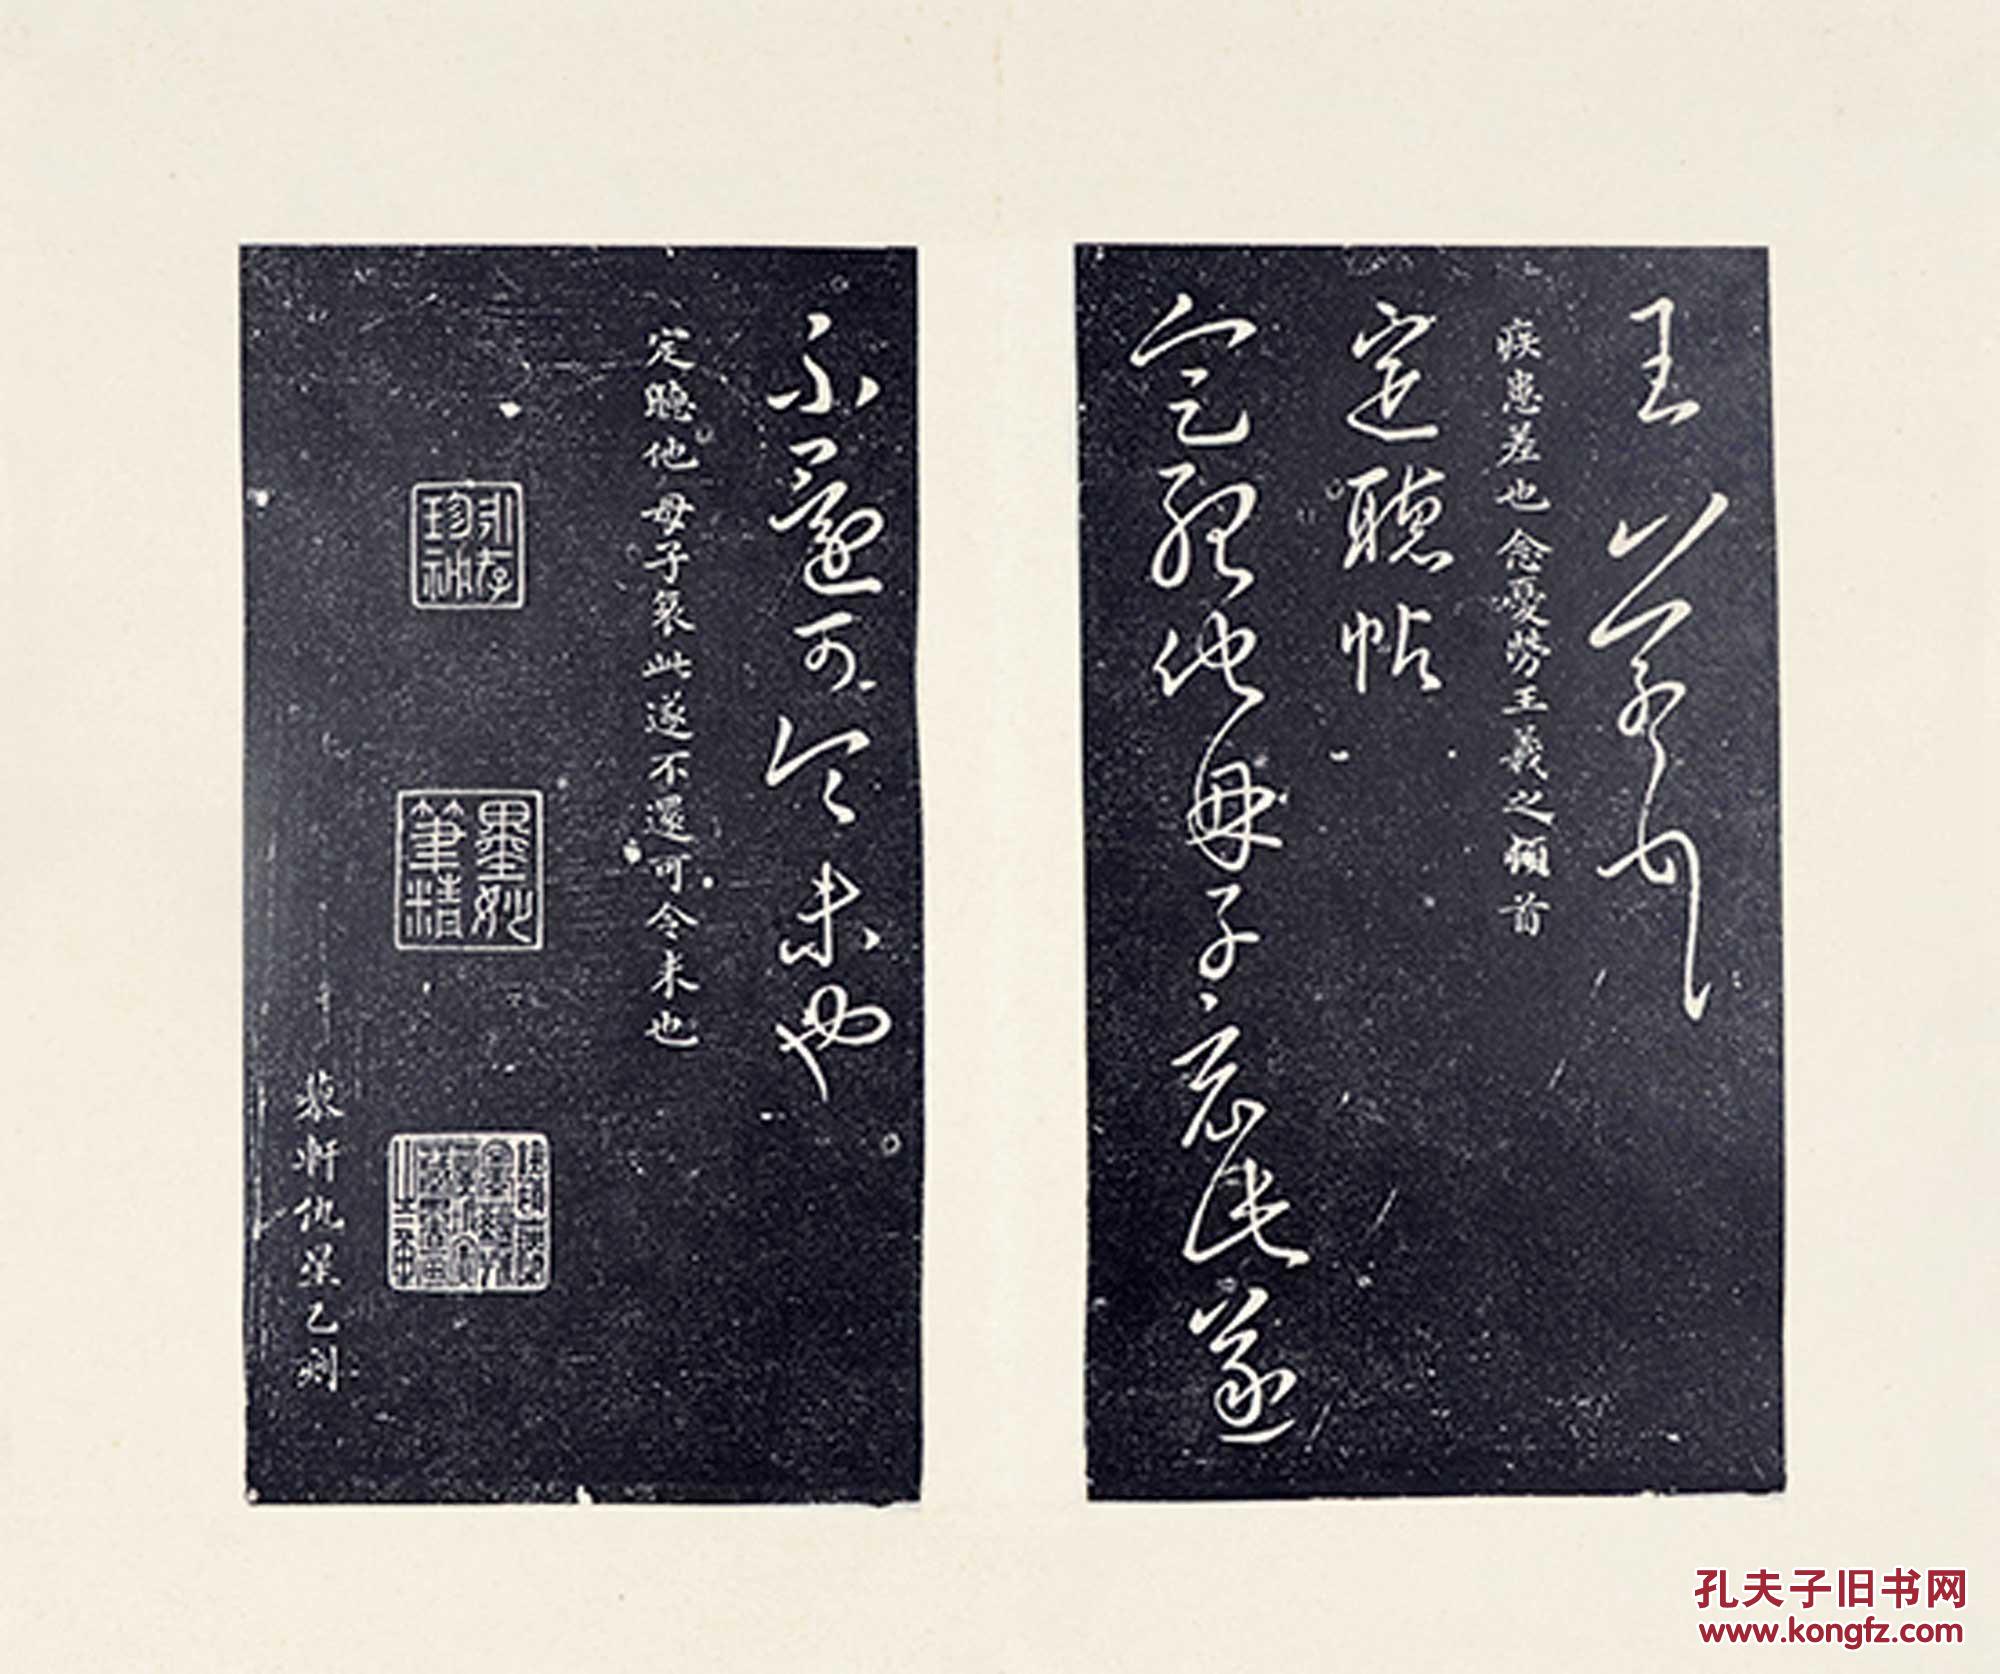 王羲之頓首
疾患差也念憂勞王羲之頓首
定聽帖
定聽他母子哀此遂
不還可令未也
定聽他母子哀此遂不還可令未也
永存珍秘
墨妙筆精
孔夫子旧书网
www.kongfz.com